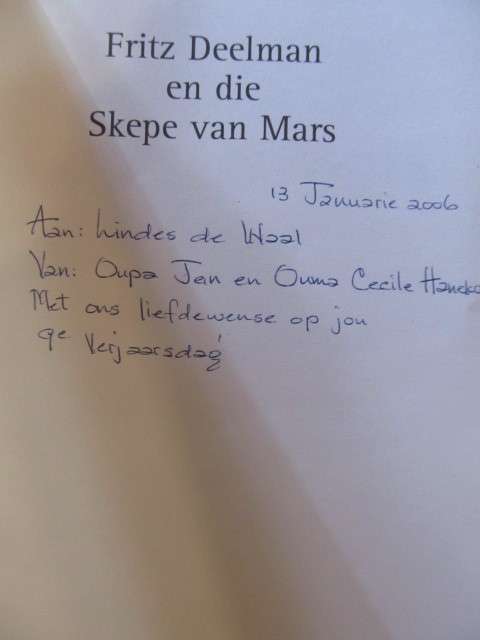 Fritz Deelman
en die
Skepe van Mars
13 Januarie 2006
Aan: Lindes de Waal
Van: Oupa Jan en Ouma Cecile
Met ons liefdewense op jou
9e Verjaarsdag